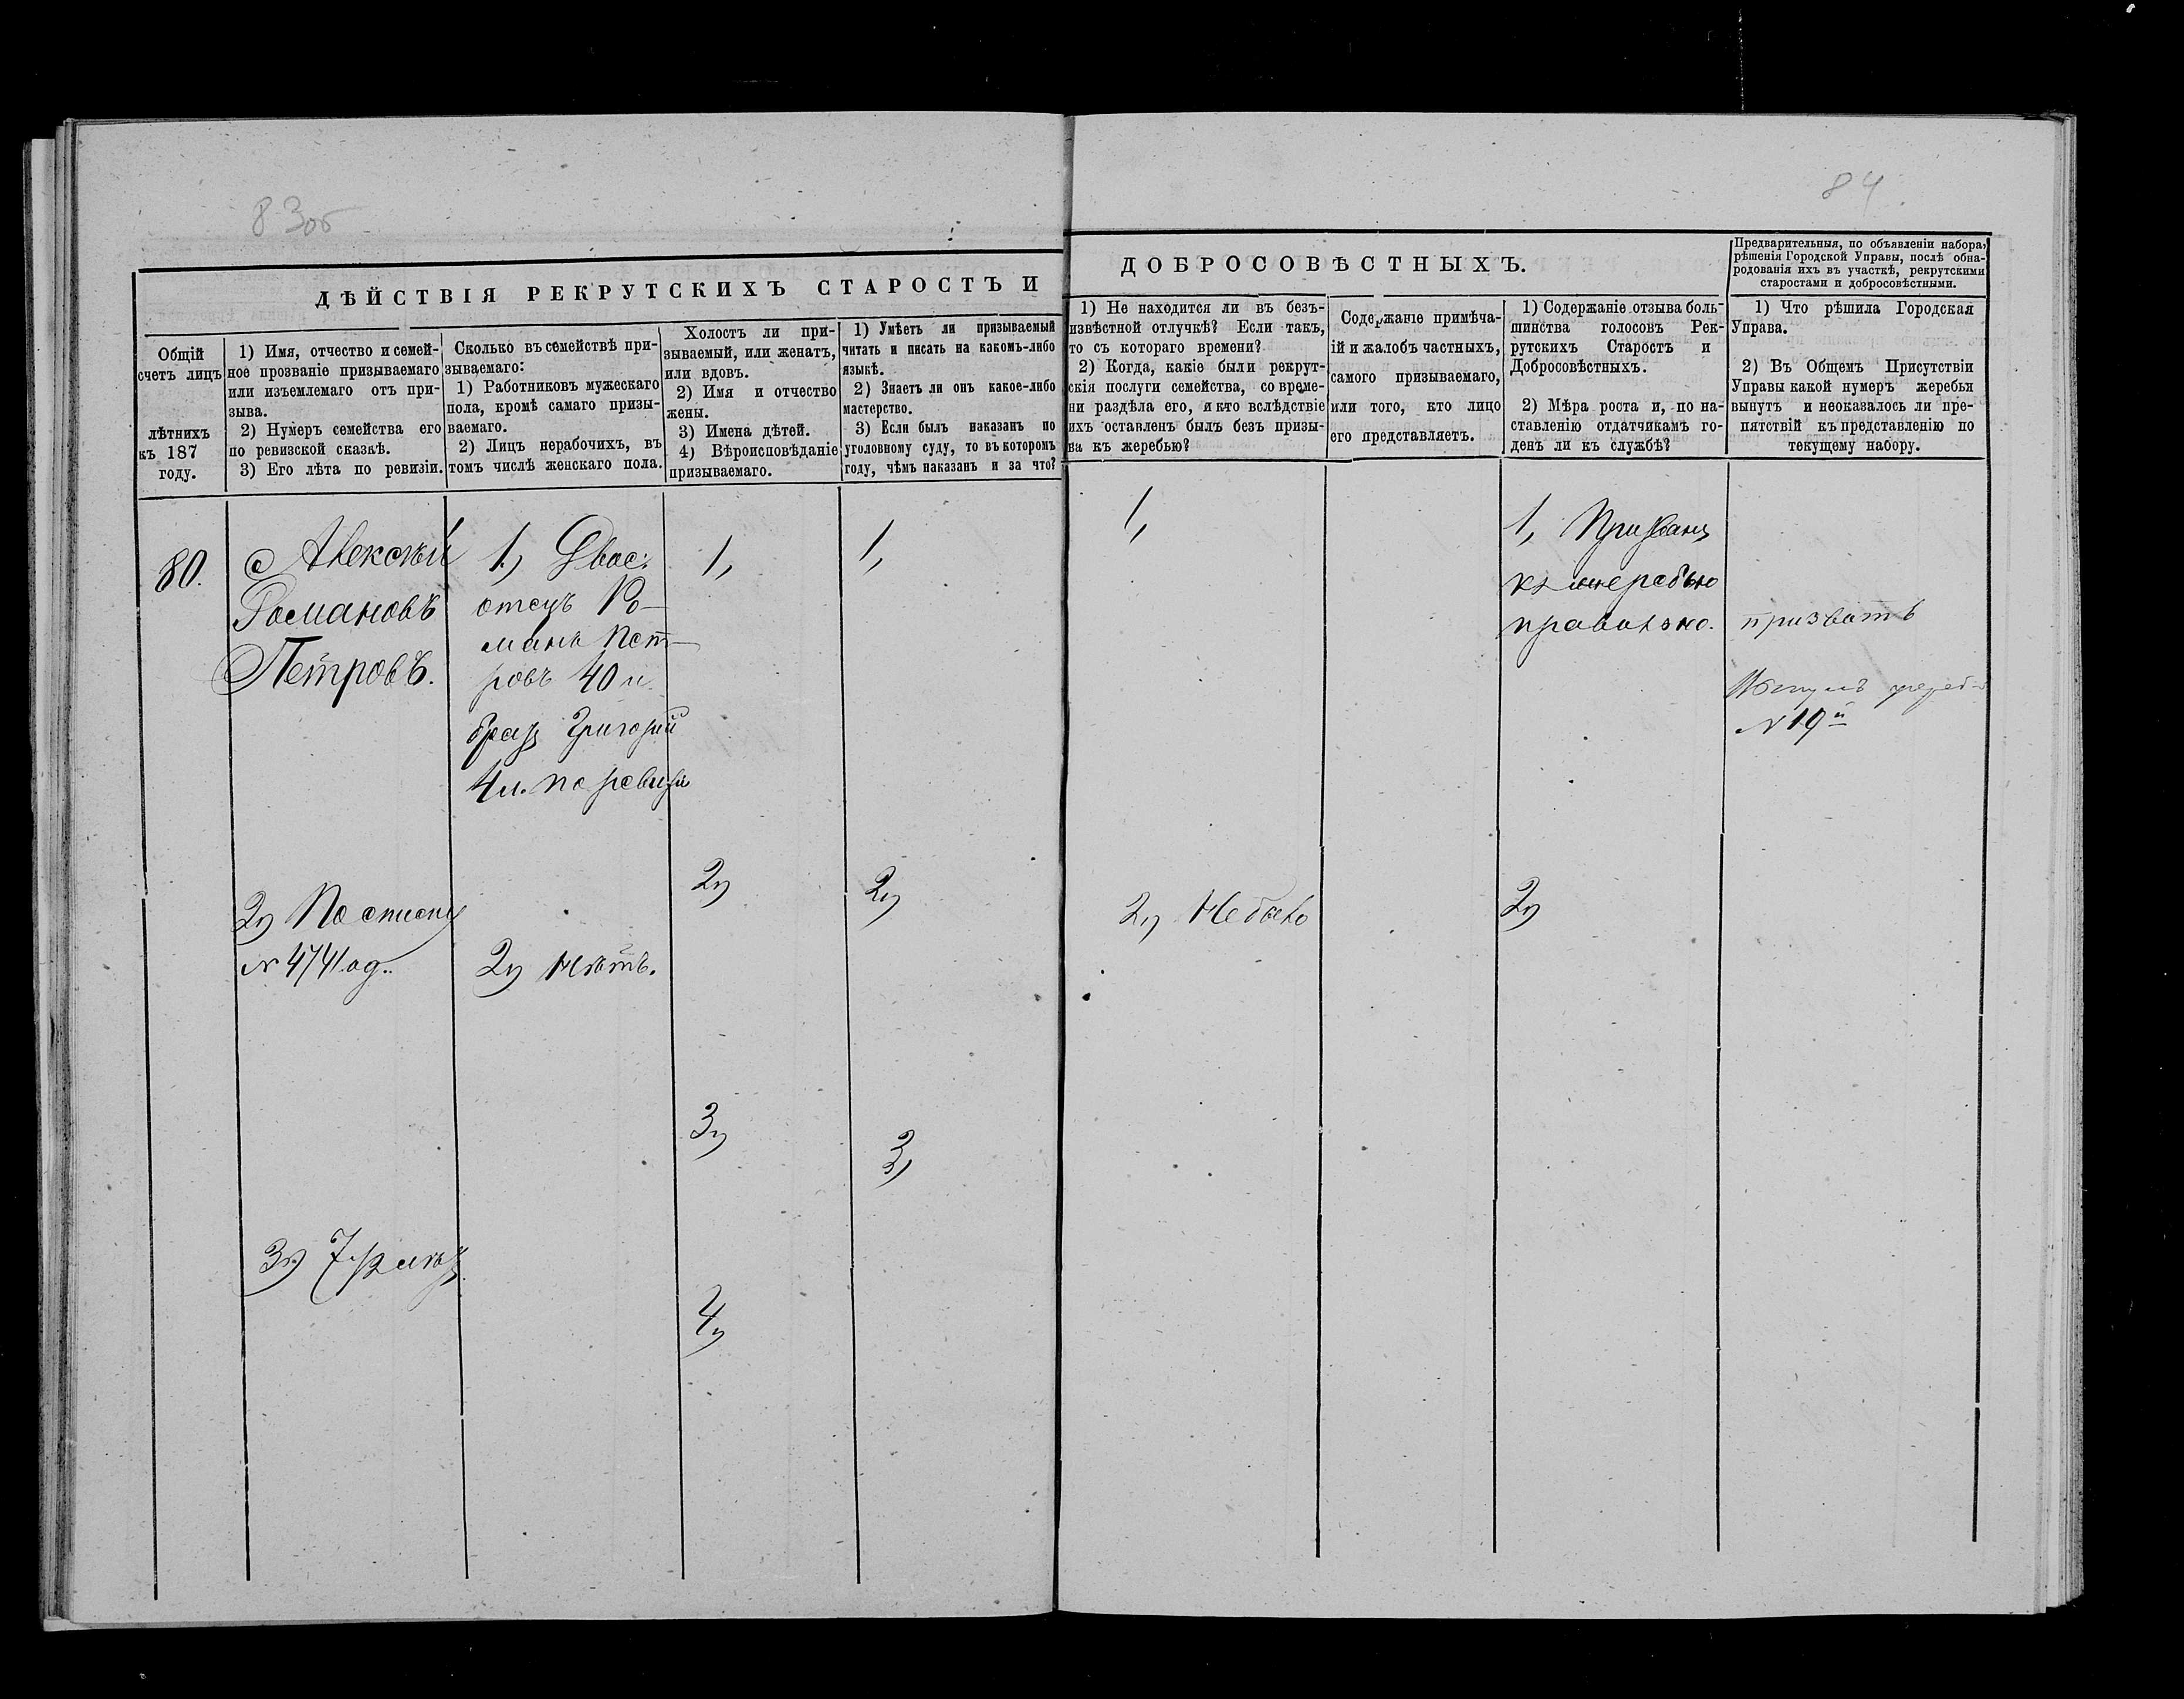 83об
84
ДѢЙСТВІЯ РЕКРУТСКИХЪ СТАРОСТЪ И
ДОБРОСОВѢСТНЫХЪ.
Предварительныя, по объявленіи набора,
рѣшенія Городской Управы, послѣ обна-
родованія ихъ въ участкѣ, рекрутскими
старостами и добросовѣстными.
Общій
счетъ лицъ
лѣтнихъ
къ 187
году.
1) Имя, отчество и семей-
ное прозваніе призываемаго
или изъемлемаго отъ при-
зыва.
2) Нумеръ семейства его
по ревизской сказкѣ.
3) Его лѣта по ревизіи.
Сколько въ семействѣ при-
зываемаго:
1) Работниковъ мужескаго
пола, кромѣ самаго призы-
ваемаго.
2) Лицъ нерабочихъ, въ
томъ числѣ женскаго пола.
Холостъ ли при-
зываемый, или женатъ,
или вдовъ.
2) Имя и отчество
жены.
3) Имена дѣтей.
4) Вѣроисповѣданіе
призываемаго.
1) Умѣетъ ли призываемый
читать и писать на какомъ-либо
языкѣ.
2) Знаетъ ли онъ какое-либо
мастерство.
3) Если былъ наказанъ по
уголовному суду, то въ которомъ
году, чѣмъ наказанъ и за что?
1) Не находится ли въ безъ-
извѣстной отлучкѣ? Если такъ,
то съ котораго времени?
2) Когда, какіе были рекрут-
скія послуги семейства, со време-
ни раздѣла его, и кто вслѣдствіе
ихъ оставленъ былъ безъ призы-
ва къ жеребью?
Содержаніе примѣча-
ій и жалобъ частныхъ,
самого призываемаго,
или того, кто лицо
его представляетъ.
1) Содержаніе отзыва боль-
шинства голосовъ Рек-
рутскихъ Старостъ и
Добросовѣстныхъ.
2) Мѣра роста и, по на-
ставленію отдатчикамъ го-
денъ ли къ службѣ?
1) Что рѣшила Городская
Управа.
2) Въ Общемъ Присутствіи
Управы какой нумеръ жеребья
вынутъ и неоказалось ли пре-
пятствій къ представленію по
текущему набору.
80.
Алексѣй
Романовъ
Петровъ.
2) По списку
№ 4741 од..
3) 7 1/2 лѣтъ
1) Двое:
отецъ Ро-
манъ Пет-
ровъ 40 л.
братъ Григорій
4 л. по ревизіи
2) Нѣтъ.
1,
2)
3)
4)
1,
2)
3)
1,
2) Небыло
1, Призванъ
къ жеребью
правильно.
2)
призвать
Вынулъ жереб
№ 19й